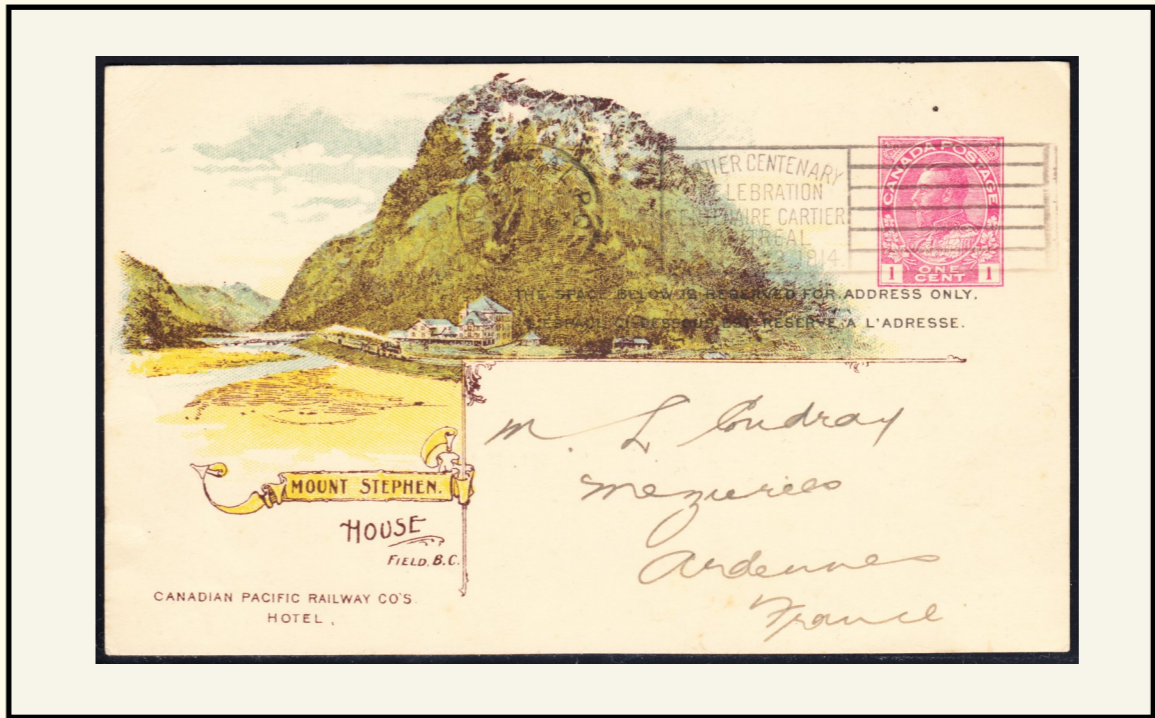 CENTENARY
CELEBRATION
CENTENAIRE CARTIER
MONTREAL
1914
CANADA POSTAGE
1 ONE CENT 1
THE SPACE BELOW IS RESERVED FOR ADDRESS ONLY.
RESERVE A L'ADRESSE.
M. L Coudray
Mezieres
Ardennes
France
MOUNT STEPHEN.
HOUSE
FIELD, B.C.
CANADIAN PACIFIC RAILWAY CO'S.
HOTEL.